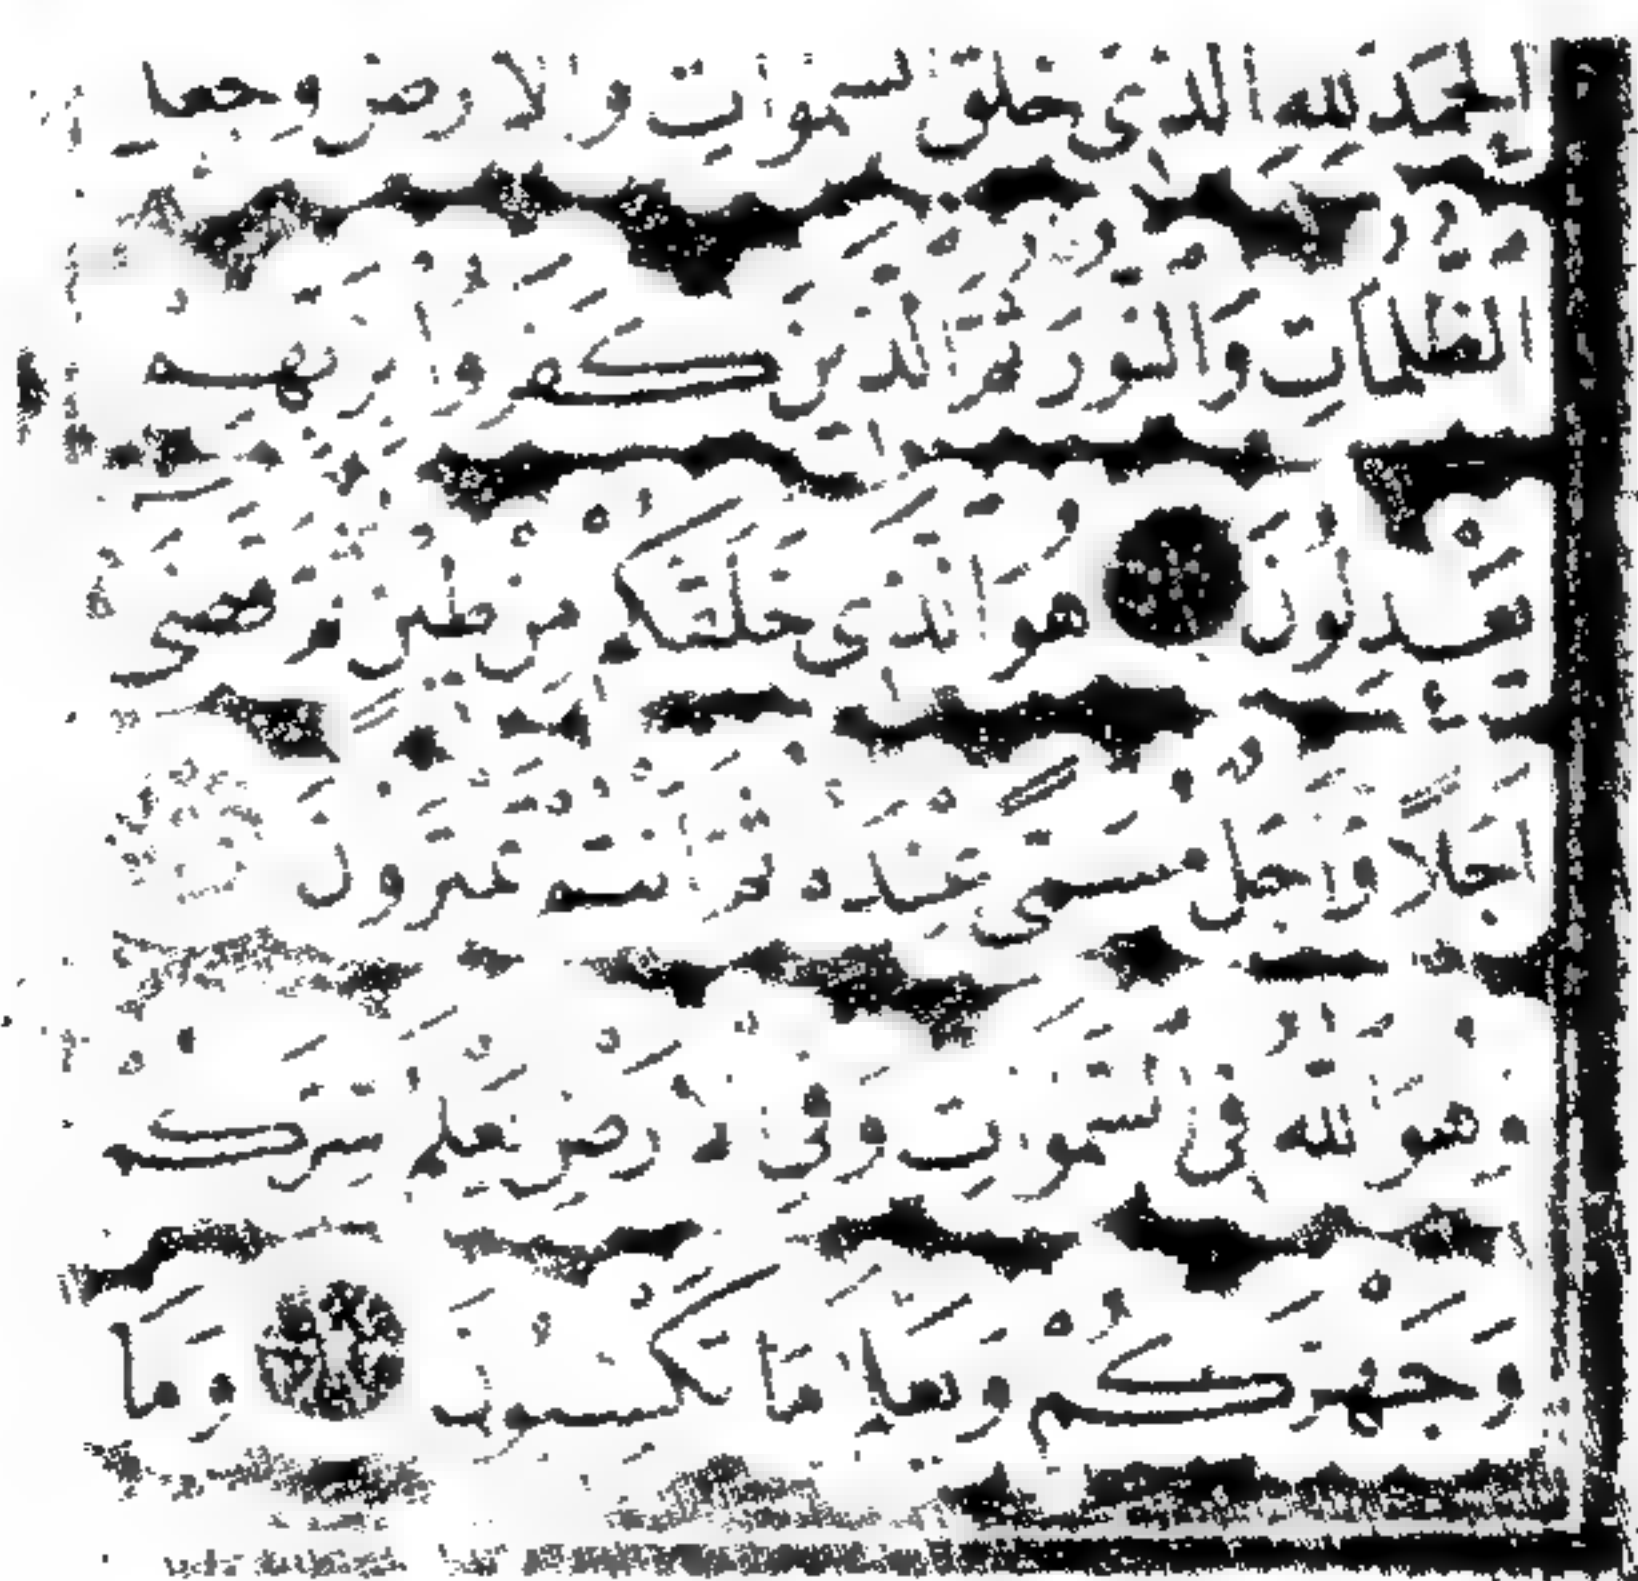 الحمد لله الذى خلق السموات والارض وجعل
الظُّلُمَاتِ وَالنُّورَ ثُمَّ الَّذِينَ كَفَرُوا بِرَبِّهِمْ
يَعْدِلُونَ هُوَ الَّذِى خَلَقَكُمْ مِنْ طِينٍ ثُمَّ قَضَى
اَجَلًا وَاَجَلٌ مُسَمًّى عِنْدَهُ ثُمَّ اَنْتُمْ تَمْتَرُونَ
وَهُوَ اللّٰهُ فِى السَّمٰوَاتِ وَفِى الْاَرْضِ يَعْلَمُ سِرَّكُمْ
وَجَهْرَكُمْ وَيَعْلَمُ مَا تَكْسِبُونَ وَمَا